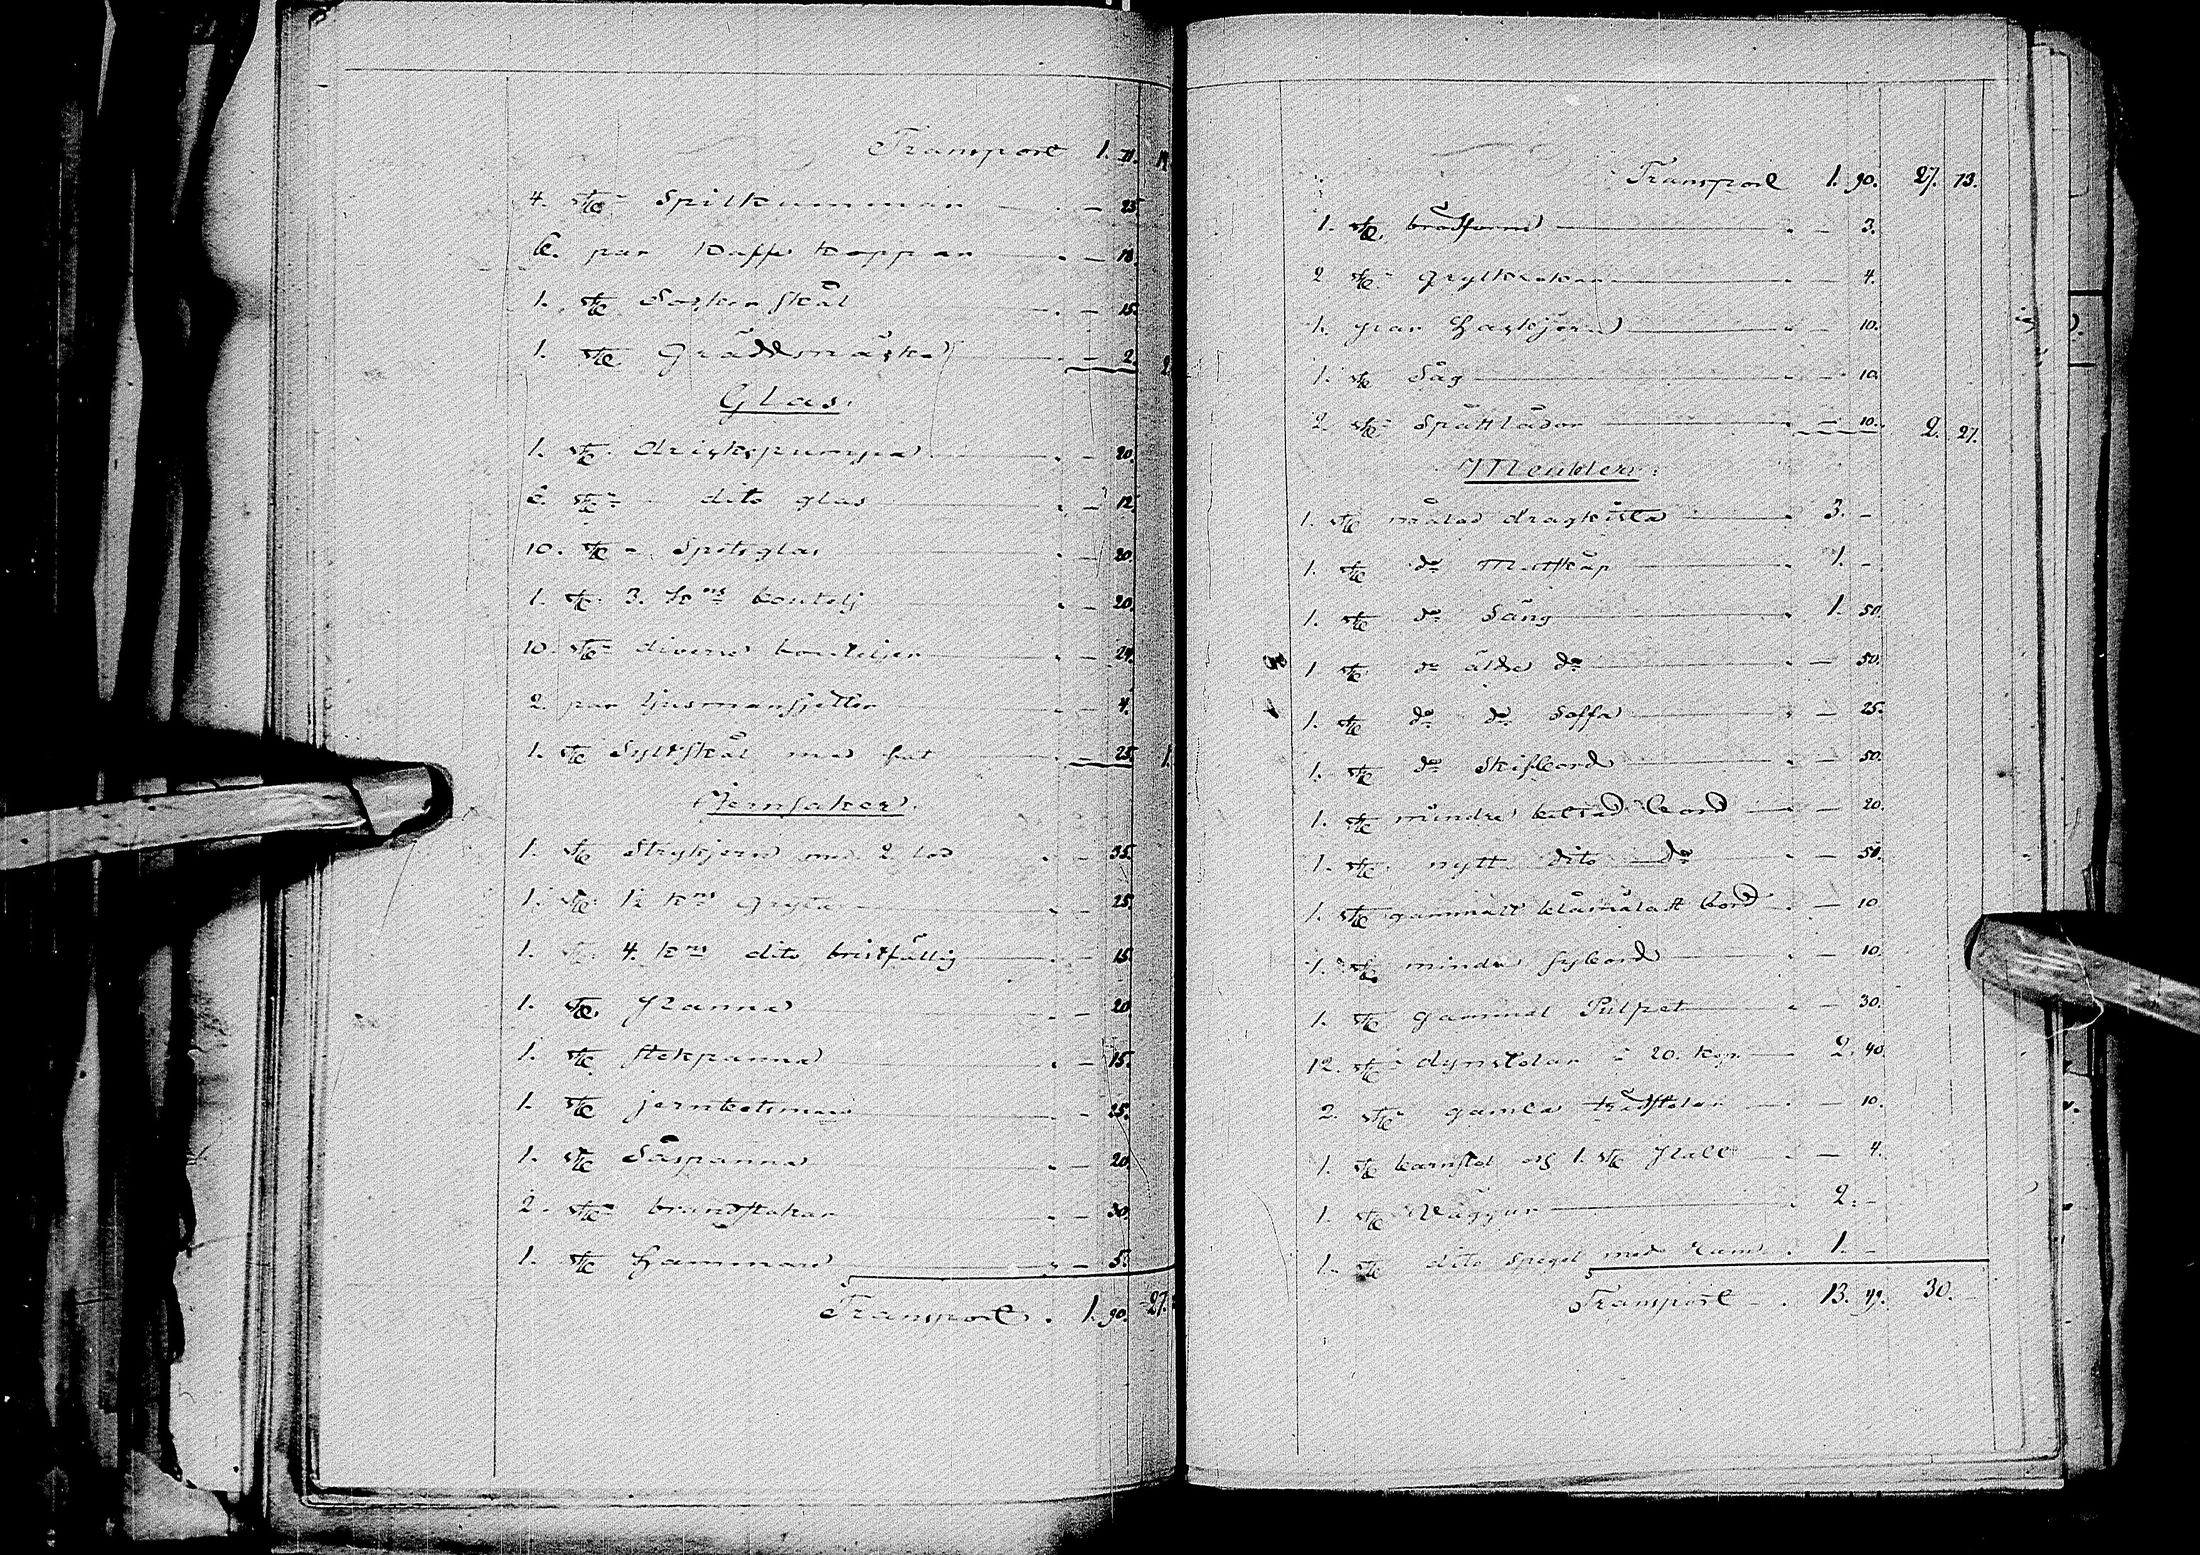 Transport 1. 71.
4. st:e Spilkummar — 25.
6. par Kaffe Koppar — 18.
1. st:e Sockerskål — 15.
1. st:e Gräddsnäcka — 2.
Glas.
1. st:e drickspumpa — 20.
6. st:er dito glas — 12.
10. st:er Spetsglas — 20.
1. st:e 3. k:rs boutelj — 20.
10. st:er diverse bouteljer — 24.
2 par ljusmansjetter — 4.
1. st:e Syltskål med fat — 25.
Jernsaker.
1. st:e Strykjern med 2 lod — 35.
1. st:e 1½ k:rs Gryta — 25.
1. st:e 4. k:rs dito bristfällig — 15.
1. st:e Panna — 20.
1. st:e stekpanna — 15.
1. st:e — 25.
1. st:e Såspanna — 20.
2. st:er brandstakar — 30.
1. st:e hammare — 5.
Transport. 1. 90. 27.
Transport 1. 90. 27. 73.
1. st:e brödform — 3.
2 st:er Grytkrokar — 4.
1. par — 10.
1. st:e Såg — 10.
2. st:er Spottlådor — 10. 2. 27.
Meubler.
1. st:e målad dragkista 3. —
1. st:e d:o Matskåp 1. —
1. st:e d:o Säng 1. 50.
1 st:e d:o äldre d:o — 50.
1. st:e d:o d:o Soffa — 25.
1. st:e d:o Skifbord — 50.
1. st:e mindre betsad bord — 20.
1. st:e nytt dito d:o — 50.
1. st:e gammalt blåmålatt bord — 10.
1. st:e mindre sybord — 10.
1. st:e gammal Pulpet — 30.
12. st:er dynstolar á 20. kop 2. 40.
2. st:er gamla trädstolar — 10.
1. st:e barnstol och 1. st:e Pall — 4.
1. st:e Väggur 2. —
1. st:e dito spegel med ram 1. —
Transport 13. 49. 30. —